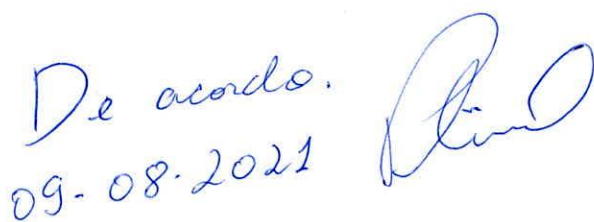 De acordo.
09-08-2021